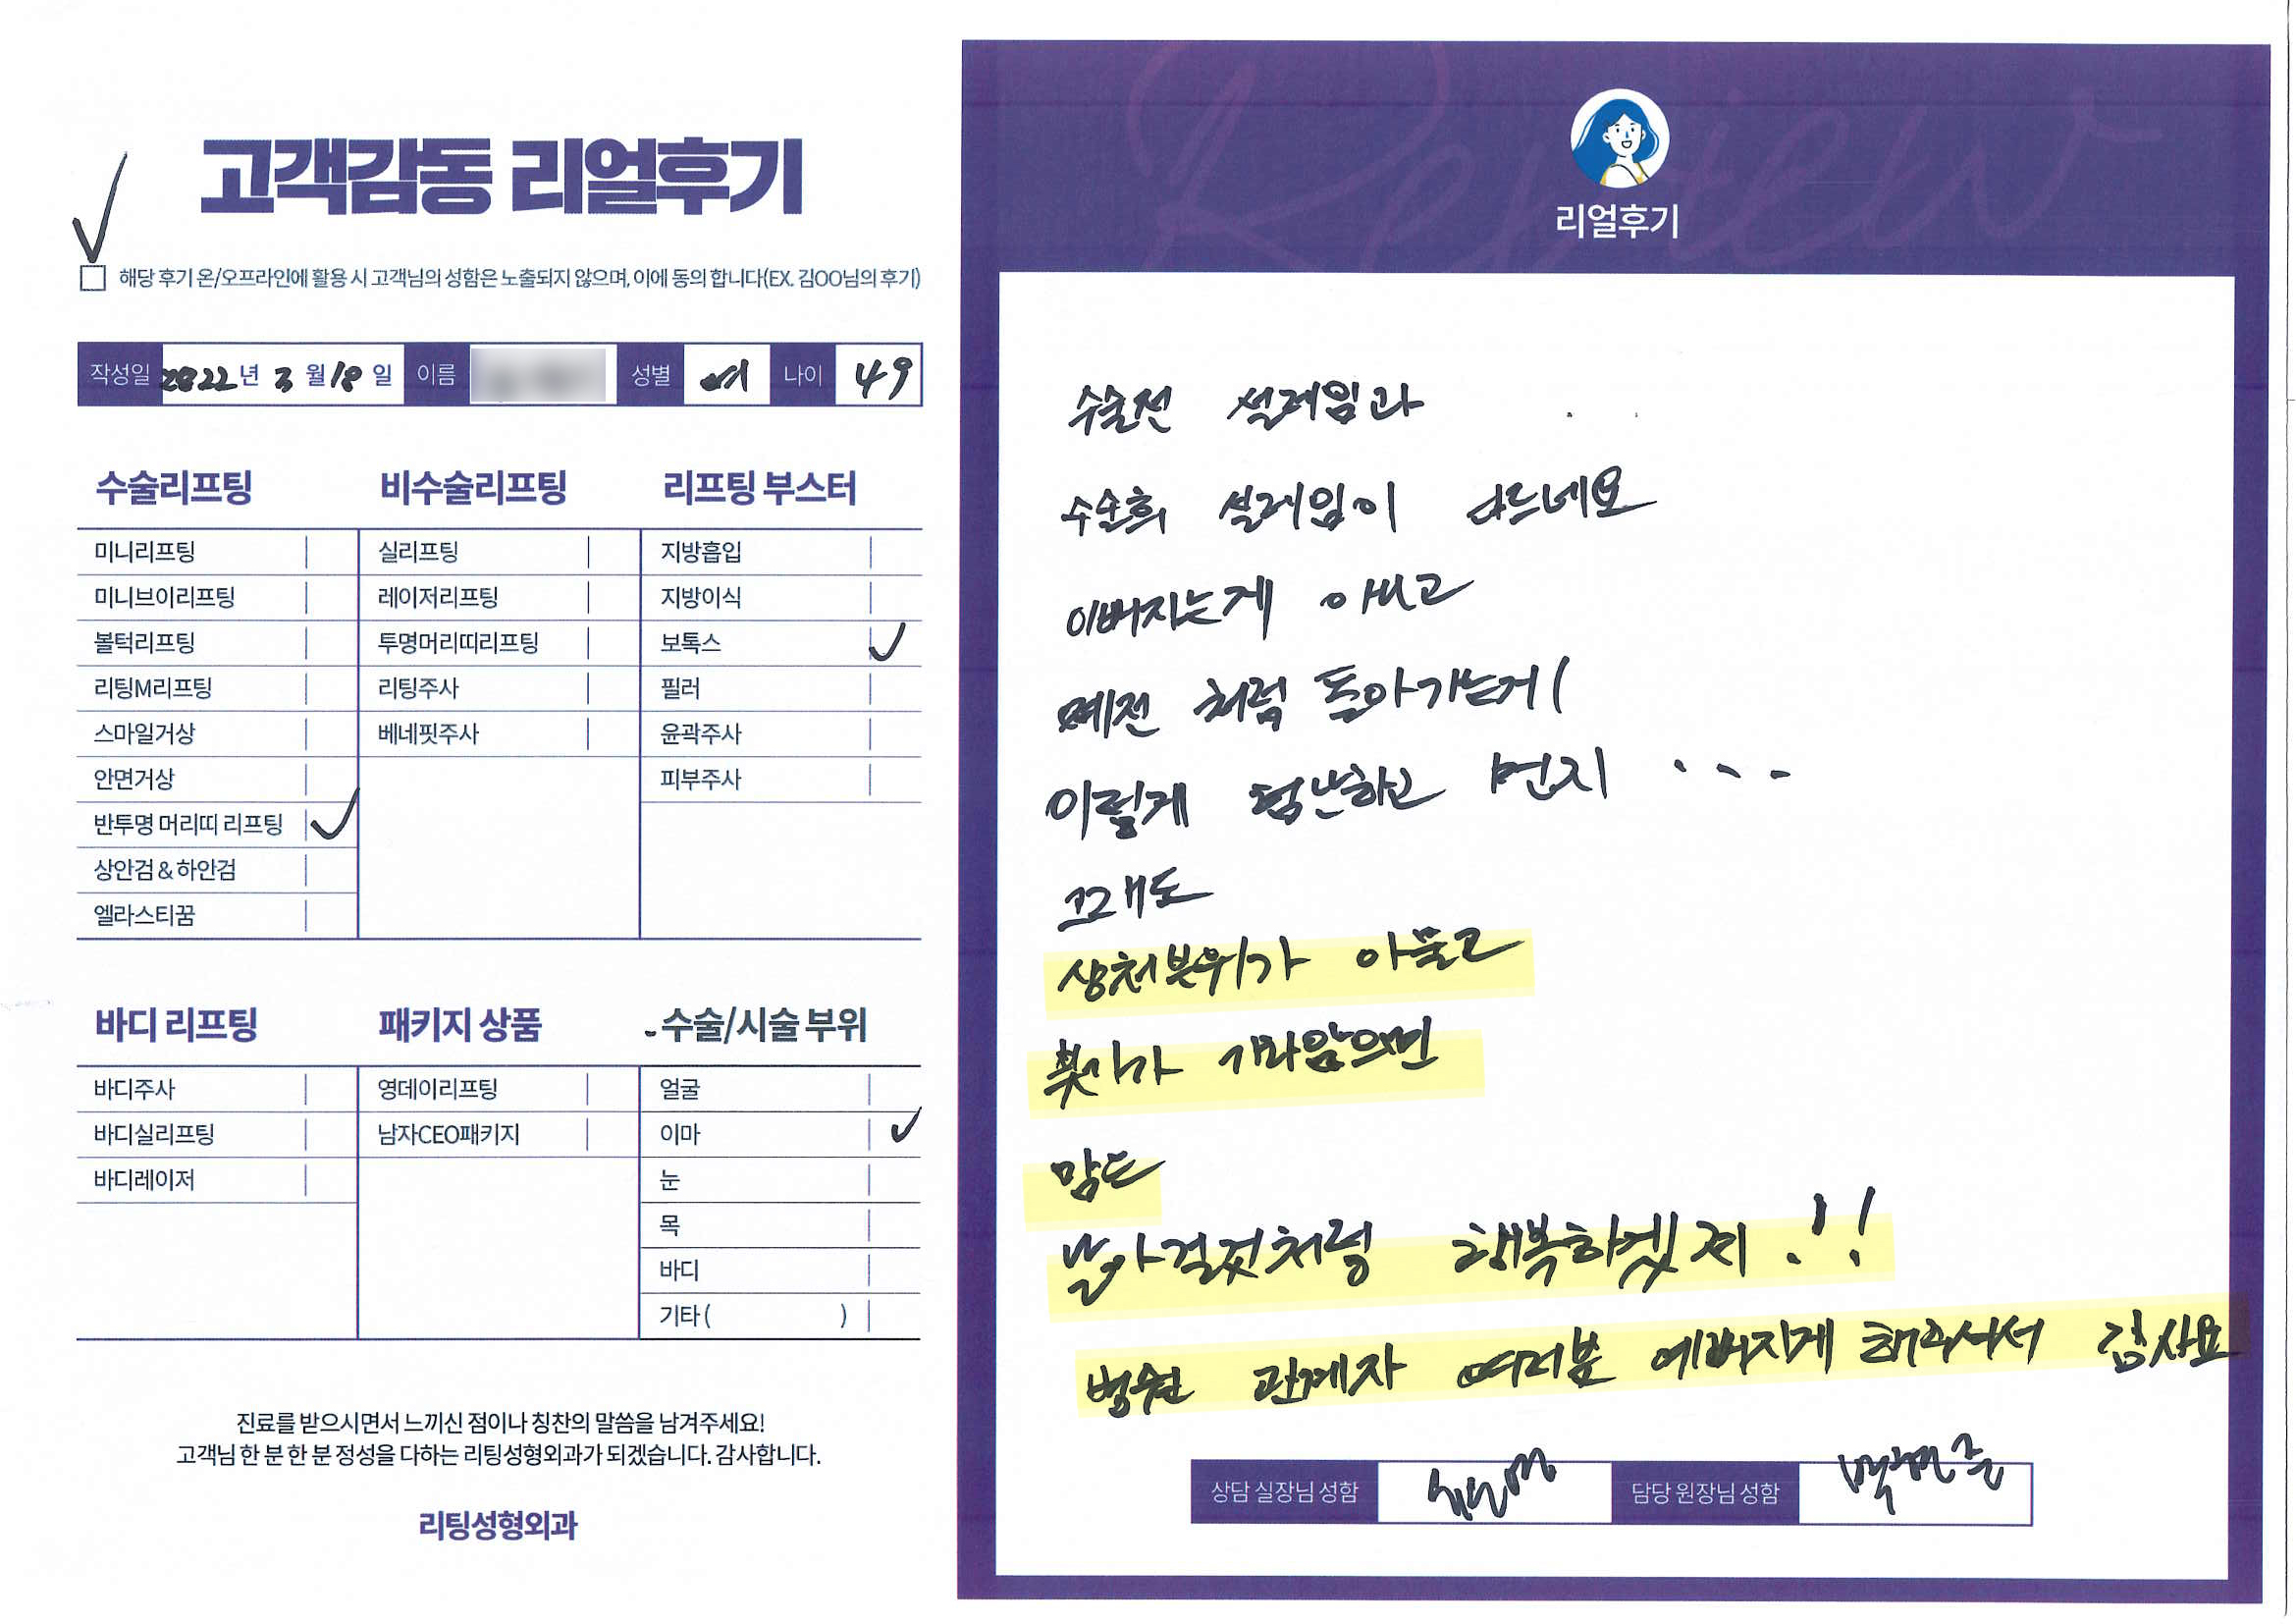 고객감동 리얼후기
해당 후기 온/오프라인에 활용 시 고객님의 성함은 노출되지 않으며, 이에 동의 합니다(EX. 김OO님의 후기)
작성일 2022년 3월 18일 이름 성별 여 나이 49
수술리프팅
미니리프팅
미니브이리프팅
볼턱리프팅
리팅M리프팅
스마일거상
안면거상
반투명 머리띠 리프팅
상안검 & 하안검
엘라스티꿈
비수술리프팅
실리프팅
레이저리프팅
투명머리띠리프팅
리팅주사
베네핏주사
리프팅 부스터
지방흡입
지방이식
보톡스
필러
윤곽주사
피부주사
바디 리프팅
바디주사
바디실리프팅
바디레이저
패키지 상품
영데이리프팅
남자CEO패키지
수술/시술 부위
얼굴
이마
눈
목
바디
기타 ( )
진료를 받으시면서 느끼신 점이나 칭찬의 말씀을 남겨주세요!
고객님 한 분 한 분 정성을 다하는 리팅성형외과가 되겠습니다. 감사합니다.
리팅성형외과
Review
리얼후기
수술전 설레임과
수술후 설레임이 다르네요
이뻐지는게 아니고
예전 처럼 돌아가는게
이렇게 험난하고 먼지 ...
그래도
상처부위가 아물고
붓기가 가라앉으면
맘도
날아갈것처럼 행복하겠지!!
병원 관계자 여러분 예뻐지게 해주셔서 감사요
상담 실장님 성함
담당 원장님 성함